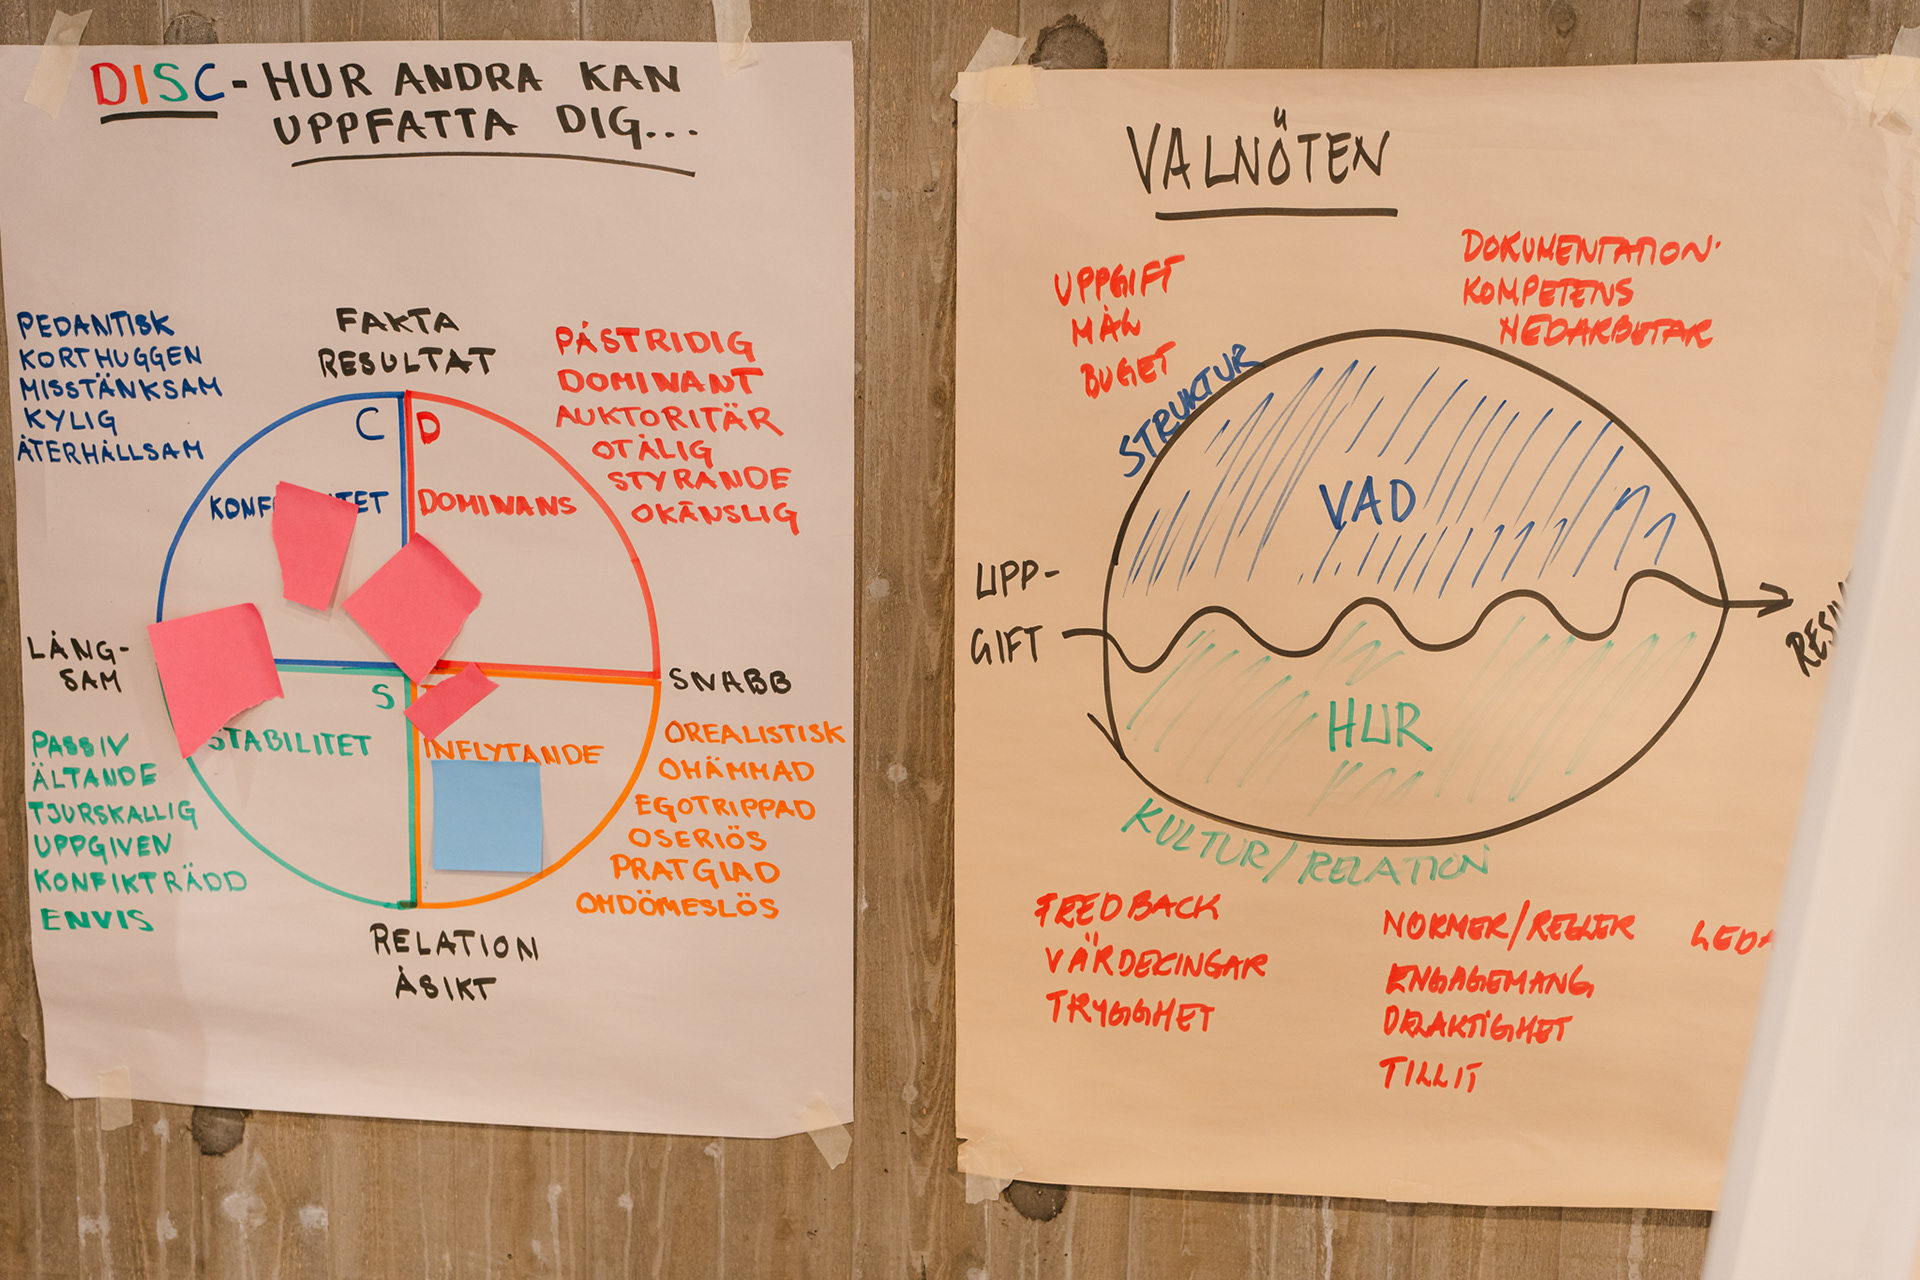 DISC - HUR ANDRA KAN
UPPFATTA DIG...
PEDANTISK
KORTHUGGEN
MISSTÄNKSAM
KYLIG
ÅTERHÅLLSAM
FAKTA
RESULTAT
PÅSTRIDIG
DOMINANT
AUKTORITÄR
OTÅLIG
STYRANDE
OKÄNSLIG
C
D
DOMINANS
LÅNG-
SAM
SNABB
S
STABILITET
INFLYTANDE
PASSIV
ÄLTANDE
TJURSKALLIG
UPPGIVEN
KONFIKTRÄDD
ENVIS
OREALISTISK
OHÄMMAD
EGOTRIPPAD
OSERIÖS
PRATGLAD
OMDÖMESLÖS
RELATION
ÅSIKT
VALNÖTEN
UPPGIFT
MÅL
BUGET
DOKUMENTATION
KOMPETENS
MEDARBETAR
STRUKTUR
VAD
UPP-
GIFT
HUR
KULTUR/RELATION
FEEDBACK
VÄRDERINGAR
TRYGGHET
NORMER/REGLER
ENGAGEMANG
DELAKTIGHET
TILLIT